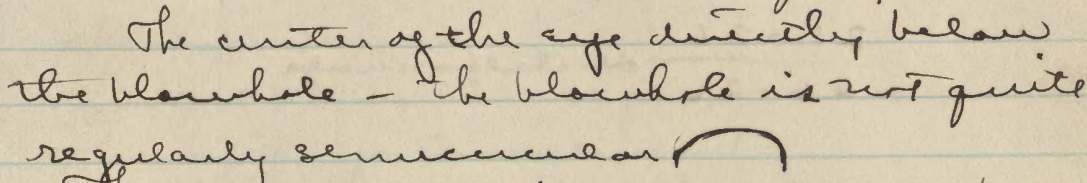 The center of the eye directly below
the blowhole – the blowhole is not quite
regularly semicircular